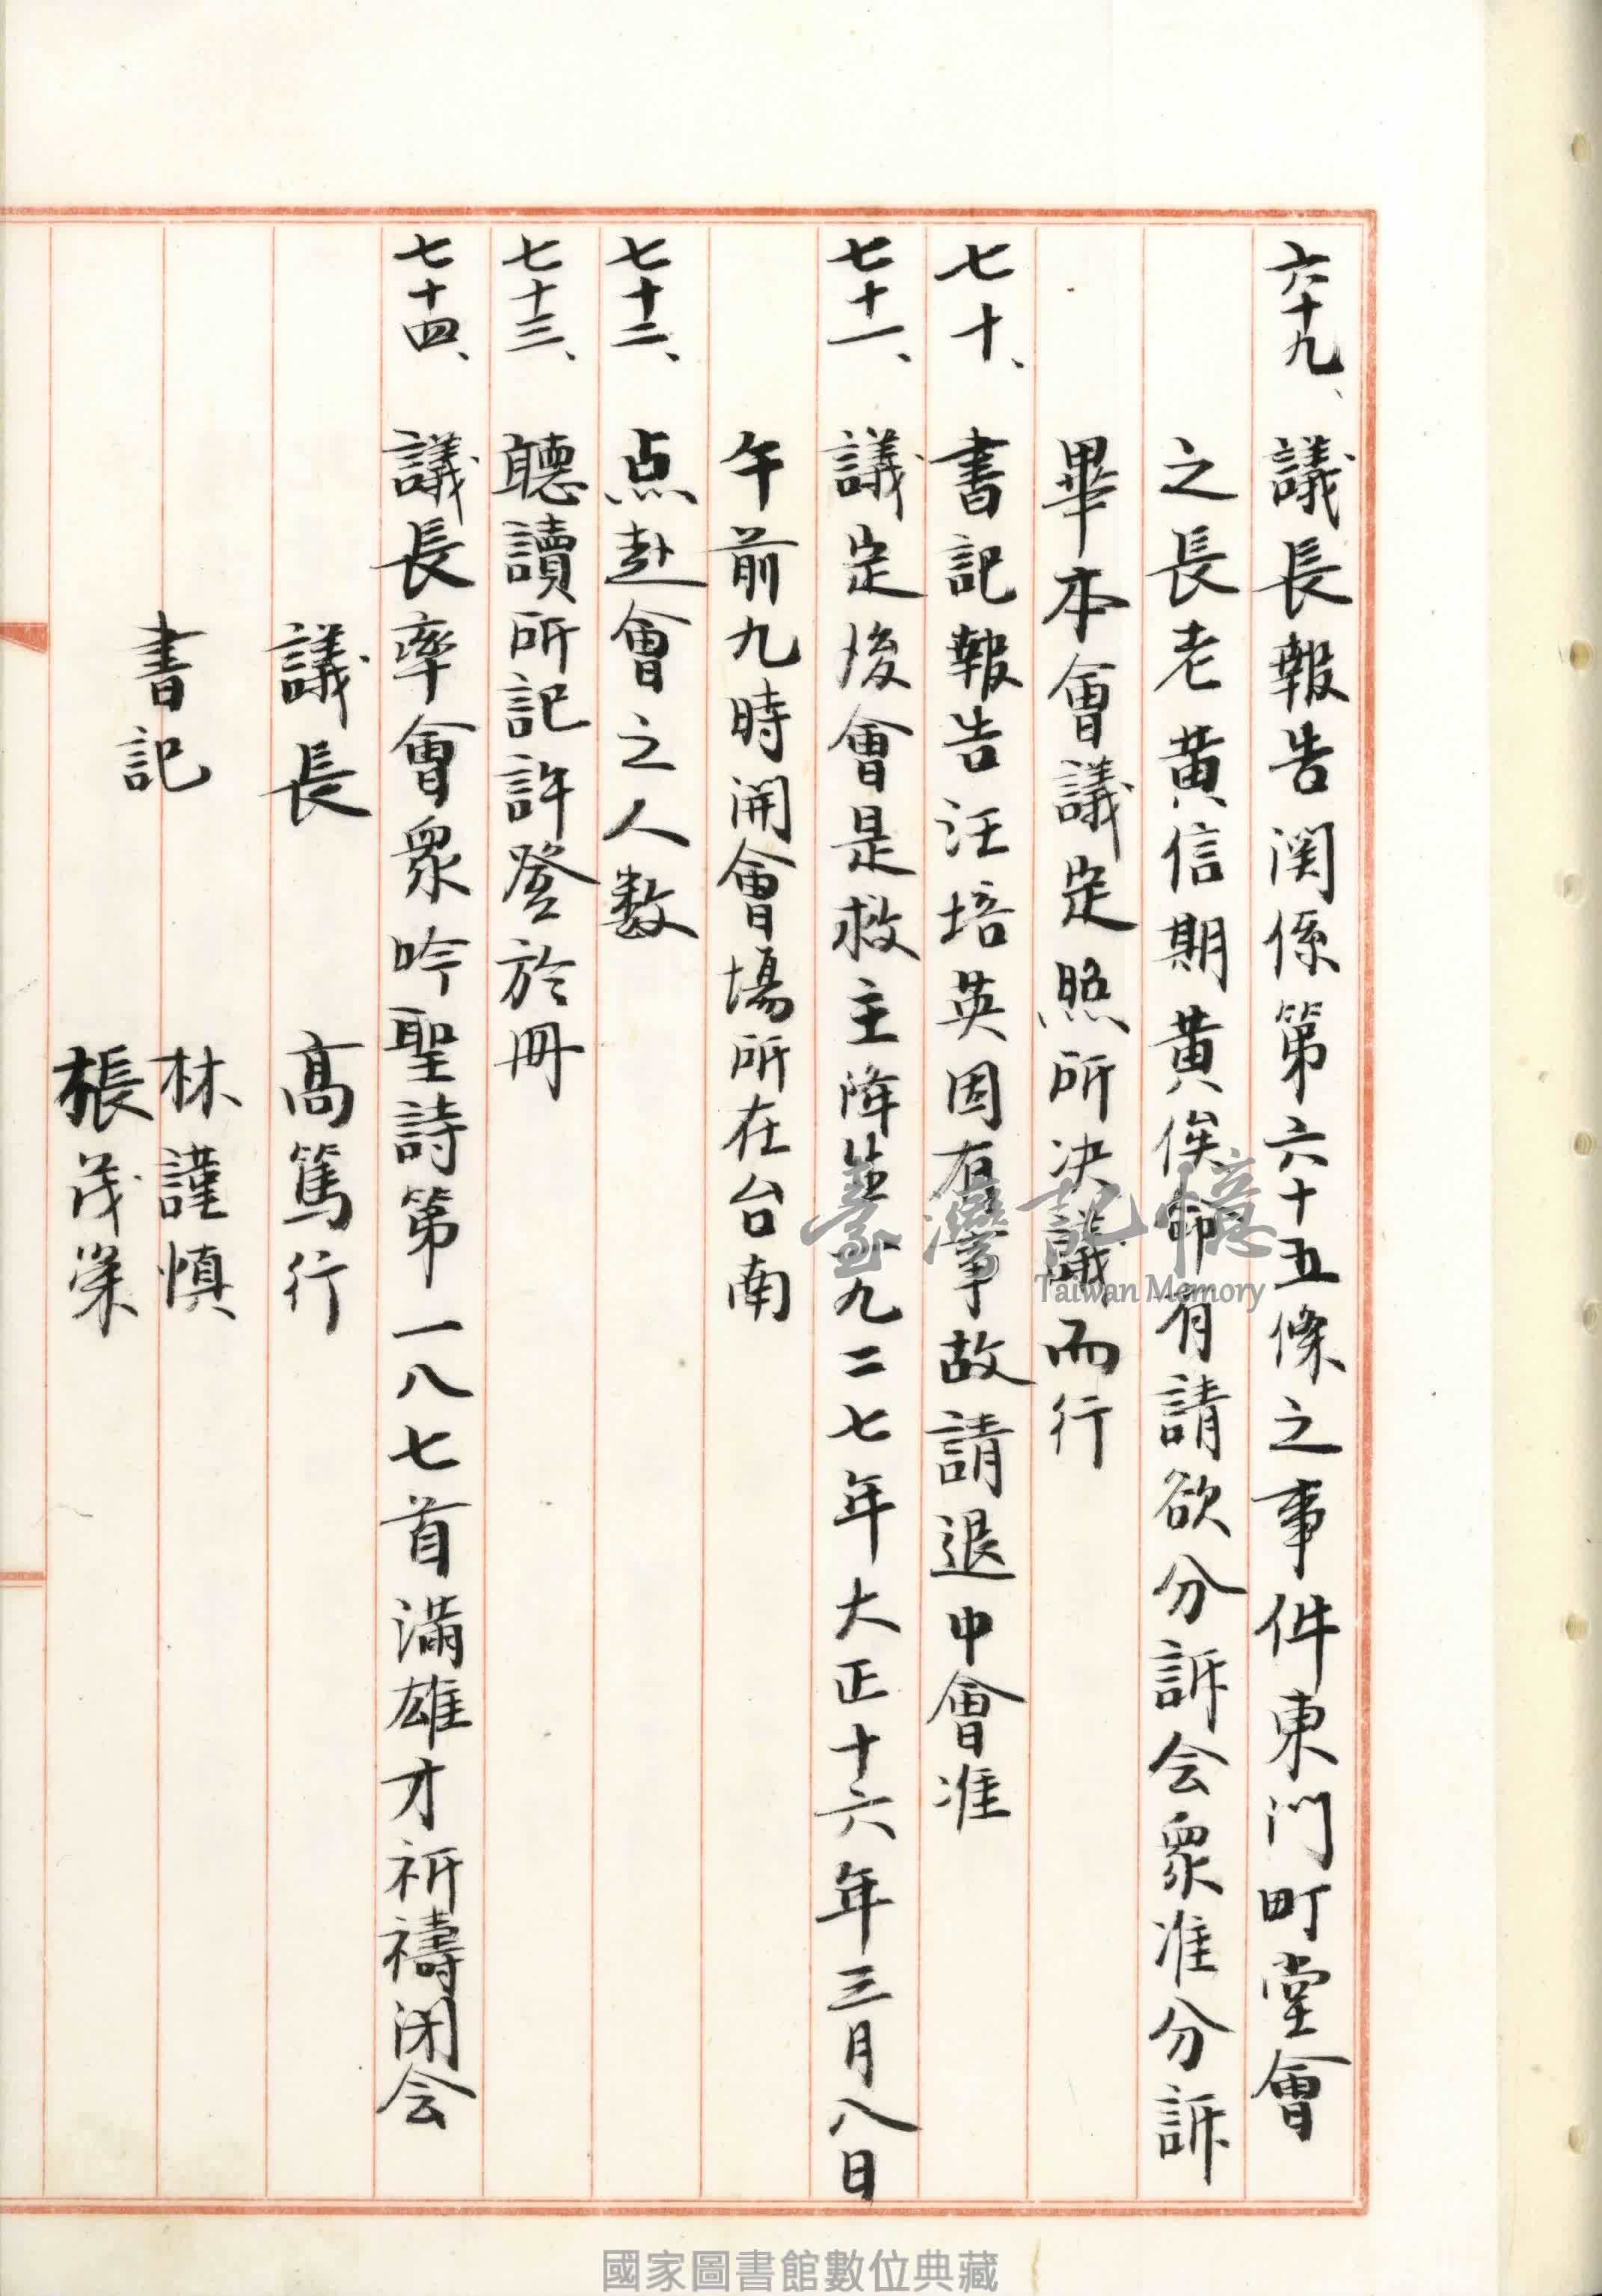 六十九、議長報告関係第六十五條之事件東門町堂會
之長老黄信期黄俟命有請欲分訴会衆准分訴
畢本會議定照所決議而行
七十、書記報告汪培英因有事故請退中會准
七十一、議定後會是救主降生一九二七年大正十六年三月八日
午前九時開會場所在台南
七十二、点赴會之人数
七十三、聽讀所記許登於冊
七十四、議長率會衆吟聖詩第一八七首滿雄才祈禱闭会
議長 高篤行
書記 林謹慎
張茂榮
臺灣記憶
Taiwan Memory
國家圖書館數位典藏